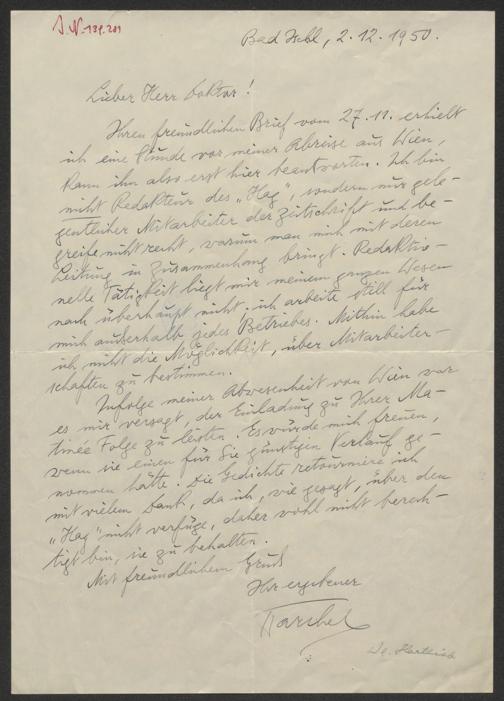 J.N. 139.201
Bad Ischl, 2.12.1950.
Lieber Herr Doktor!
Ihren freundlichen Brief vom 27.11. erhielt
ich eine Stunde vor meiner Abreise aus Wien,
kann ihn also erst hier beantworten. Ich bin
nicht Redakteur des „Hag", sondern nur gele-
gentlicher Mitarbeiter der Zeitschrift und be-
greife nicht recht, warum man mich mit deren
Leitung in Zusammenhang bringt. Redaktio-
nelle Tätigkeit liegt mir meinem ganzen Wesen
nach überhaupt nicht, ich arbeite still für
mich außerhalb jedes Betriebes. Mithin habe
ich nicht die Möglichkeit, über Mitarbeiter-
schaften zu bestimmen.
Infolge meiner Abwesenheit von Wien war
es mir versagt, der Einladung zu Ihrer Ma-
tinée Folge zu leisten. Es würde mich freuen,
wenn sie einen für Sie günstigen Verlauf ge-
nommen hätte. Die Gedichte retourniere ich
mit vielem Dank, da ich, wie gesagt, über den
„Hag" nicht verfüge, daher wohl nicht berech-
tigt bin, sie zu behalten.
Mit freundlichem Gruß
Ihr ergebener